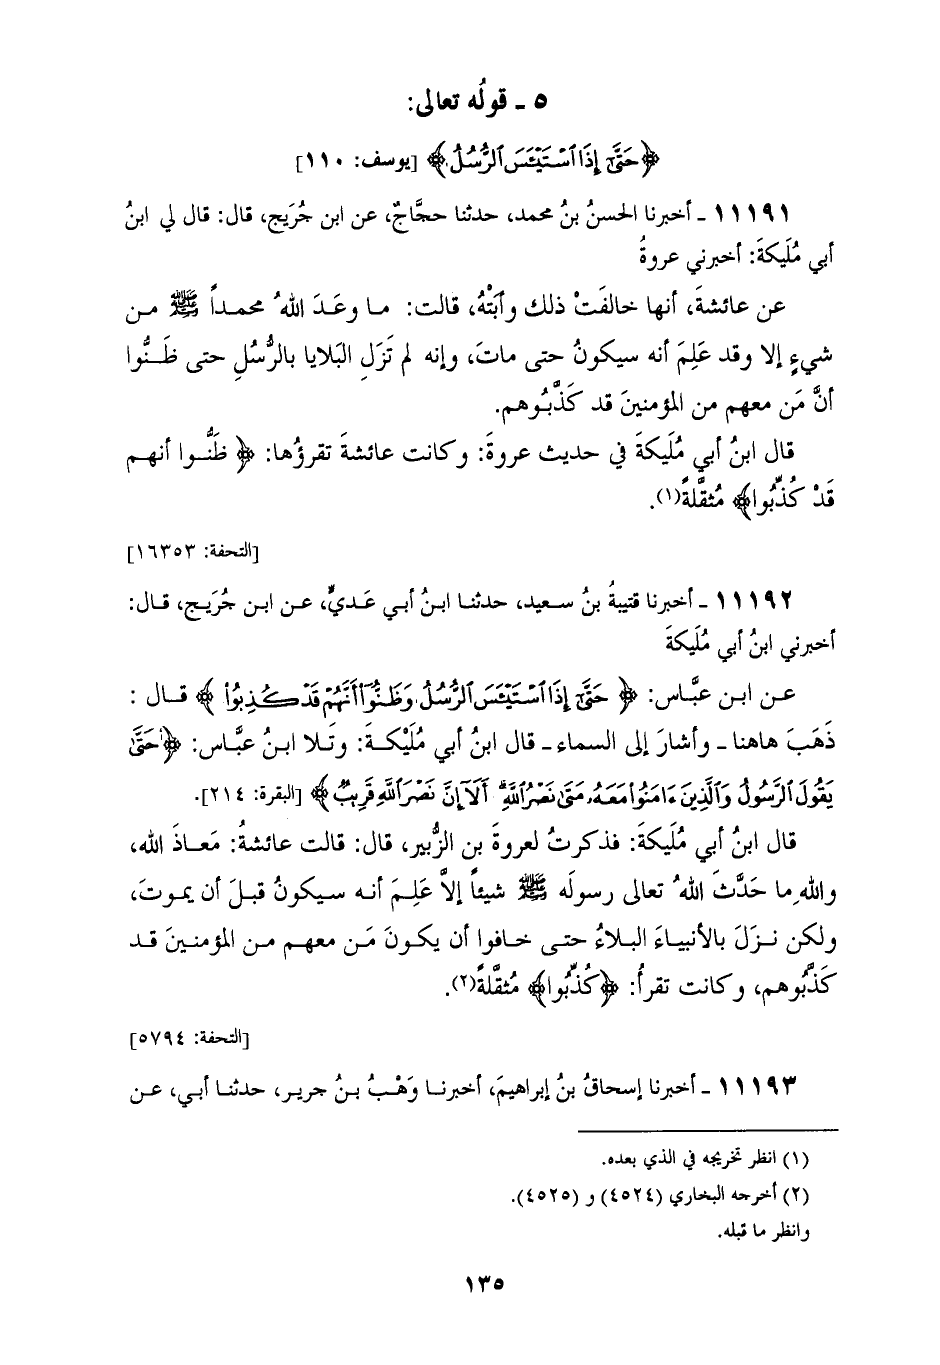 ٥ ـ قولُه تعالى:
﴿حَتَّىٰٓ إِذَا ٱسْتَيْـَٔسَ ٱلرُّسُلُ﴾ [يوسف: ١١٠]
١١١٩١ ـ أخبرنا الحسنُ بنُ محمد، حدثنا حجَّاجٌ، عن ابن جُرَيج، قال: قال لي ابنُ
أبي مُلَيكةَ: أخبرني عروةُ
عن عائشةَ، أنها خالفَتْ ذلك وأبَتْهُ، قالت: ما وعَدَ اللهُ محمداً ﷺ من
شيءٍ إلا وقد عَلِمَ أنه سيكونُ حتى ماتَ، وإنه لم تَزَلِ البَلايا بالرُّسُلِ حتى ظَنُّوا
أنَّ مَن معهم من المؤمنينَ قد كَذَّبُوهم.
قال ابنُ أبي مُلَيكةَ في حديث عروةَ: وكانت عائشةَ تقرؤُها: ﴿ظَنُّوا أنهم
قَدْ كُذِّبُوا﴾ مُثقَّلةً(١).
[التحفة: ١٦٣٥٣]
١١١٩٢ ـ أخبرنا قتيبةُ بنُ سعيد، حدثنا ابنُ أبي عَديٍّ، عن ابن جُرَيج، قال:
أخبرني ابنُ أبي مُلَيكةَ
عن ابن عبَّاس: ﴿حَتَّىٰٓ إِذَا ٱسْتَيْـَٔسَ ٱلرُّسُلُ وَظَنُّوٓا۟ أَنَّهُمْ قَدْ كُذِبُوا۟﴾ قال:
ذَهَبَ هاهنا ـ وأشارَ إلى السماء ـ قال ابنُ أبي مُلَيْكةَ: وتَلا ابنُ عبَّاس: ﴿حَتَّىٰ
يَقُولَ ٱلرَّسُولُ وَٱلَّذِينَ ءَامَنُوا۟ مَعَهُۥ مَتَىٰ نَصْرُ ٱللَّهِ ۗ أَلَآ إِنَّ نَصْرَ ٱللَّهِ قَرِيبٌ﴾ [البقرة: ٢١٤].
قال ابنُ أبي مُلَيكةَ: فذكرتُ لعروةَ بن الزُّبير، قال: قالت عائشةُ: مَعاذَ الله،
واللهِ ما حَدَّثَ اللهُ تعالى رسولَه ﷺ شيئاً إلاَّ عَلِمَ أنه سيكونُ قبلَ أن يموتَ،
ولكن نزَلَ بالأنبياءَ البلاءُ حتى خافوا أن يكونَ مَن معهم من المؤمنينَ قد
كَذَّبُوهم، وكانت تقرأُ: ﴿كُذِّبُوا﴾ مُثقَّلةً(٢).
[التحفة: ٥٧٩٤]
١١١٩٣ ـ أخبرنا إسحاقُ بنُ إبراهيمَ، أخبرنا وَهْبُ بنُ جرير، حدثنا أبي، عن
(١) انظر تخريجه في الذي بعده.
(٢) أخرجه البخاري (٤٥٢٤) و (٤٥٢٥).
وانظر ما قبله.
١٣٥